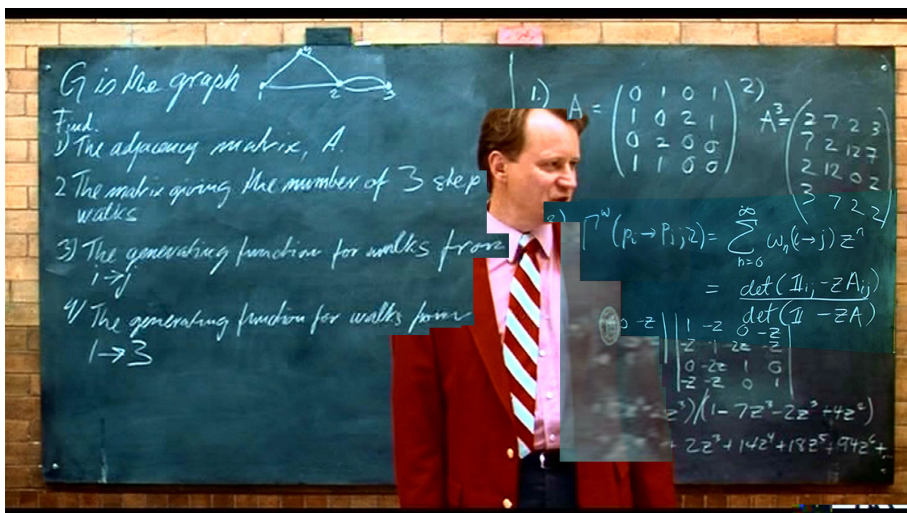 G is the graph
1 2 3
Find.
1) The adjacency matrix, A.
2 The matrix giving the number of 3 step
walks
3) The generating function for walks from
i→j
4) The generating function for walks from
1→3
1.) A = (0 1 0 1
1 0 2 1
0 2 0 0
1 1 0 0)
2)
A³ = (2 7 2 3
7 2 12 7
2 12 0 2
3 7 2 2)
Γʷ(pᵢ→Pⱼ;z) = ∞ Σ n=0 ωₙ(i→j) zⁿ
= det(𝟙ᵢⱼ - zAᵢⱼ)
det(𝟙 - zA)
0 -z
1 -z 0 -z
-z 1 -2z -z
0 -2z 1 0
-z -z 0 1
z³)/(1-7z²-2z³+4z⁴)
+ 2z³+14z⁴+18z⁵+94z⁶+